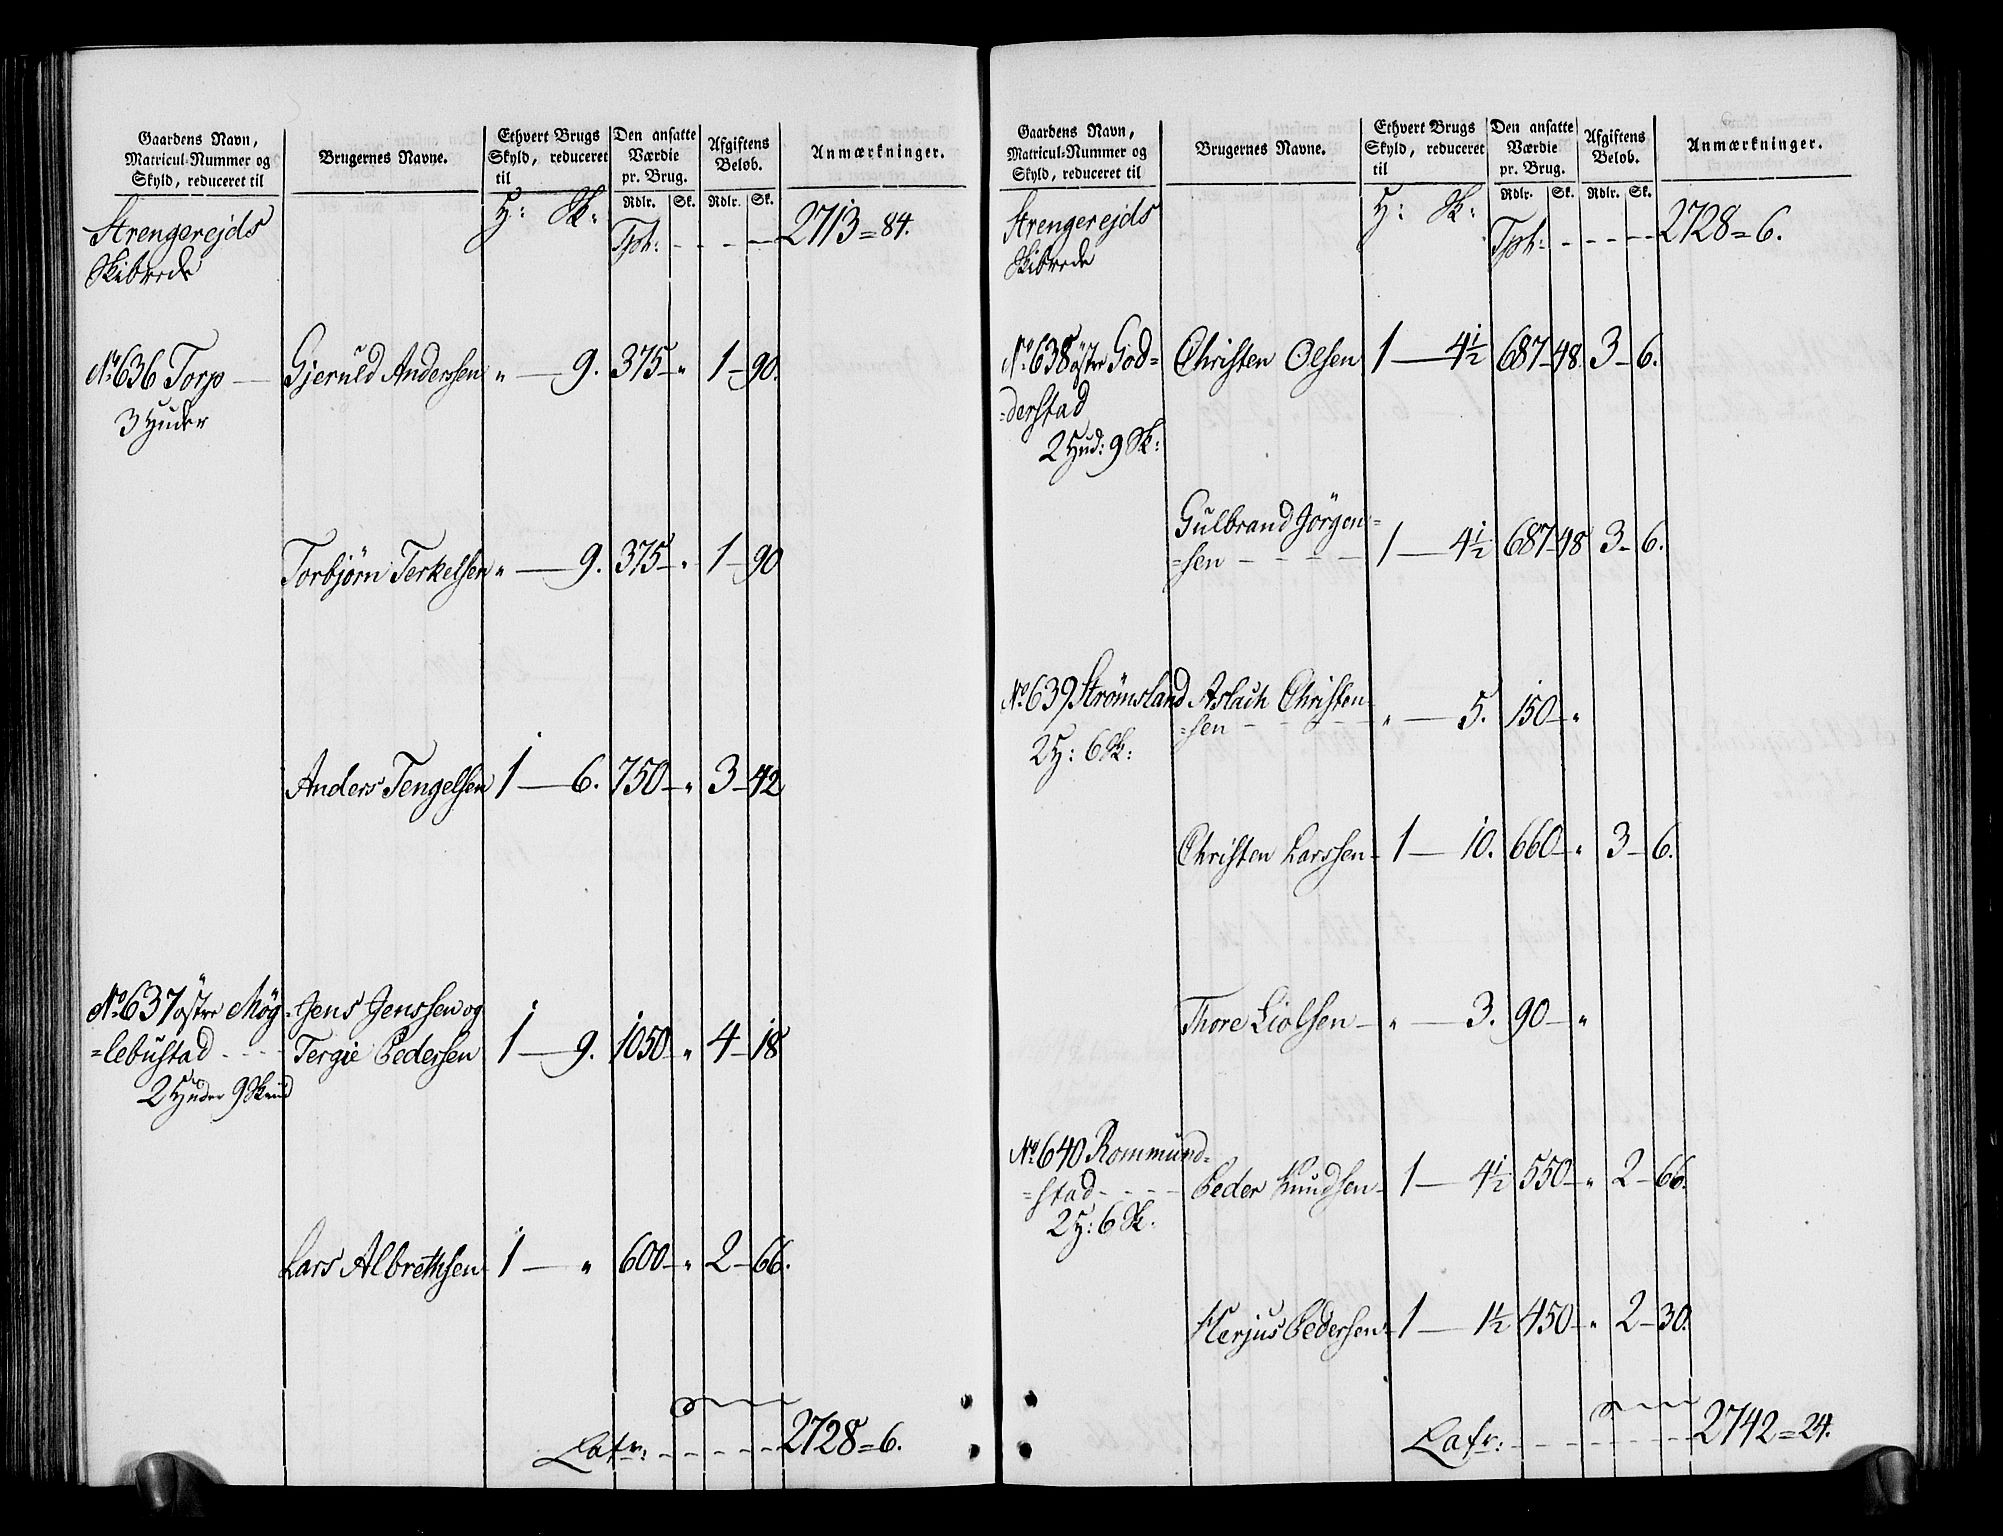 Gaardens Navn, Matricul-Nummer og Skyld, reduceret til | Brugernes Navne. | Ethvert Brugs Skyld, reduceret til | Den ansatte Værdie pr. Brug. | Afgiftens Beløb. | Anmærkninger.
H: Sk: | Rdlr. | Sk. | Rdlr. | Sk.
Strengerejds Tpt: - - - - 2713 = 84.
Skibrede
No 636 Torp — Gjeruld Anderssen " — 9. 375 — " 1 — 90.
3 Huder
Torbjørn Terkelsen " — 9. 375 — " 1 — 90
Anders Tengelsen 1 — 6. 750 — " 3 — 42
No 637 østre Møg- Jens Jenssen og
=lebustad - - - Tergie Pedersen 1 — 9. 1050 " 4 — 18
2 Huder 9 Skind
Lars Albrethsen 1 — " 600 — " 2 — 66.
Latr: - - - - - 2728 = 6.
Gaardens Navn, Matricul-Nummer og Skyld, reduceret til | Brugernes Navne. | Ethvert Brugs Skyld, reduceret til | Den ansatte Værdie pr. Brug. | Afgiftens Beløb. | Anmærkninger.
H: Sk: | Rdlr. | Sk. | Rdlr. | Sk.
Strengerejds Tpt: - - - - 2728 = 6.
Skibrede
No 638 østre God= Christen Olsen 1 — 4½ 687 — 48. 3 — 6.
=derstad
2 Hud: 9 Sk:
Gulbrand Jörgen=
=sen - - - - 1 — 4½ 687 — 48 3 — 6.
No 639 Strömsland Aslach Christen
=sen - - - " — 5. 150 — "
2 H: 6 Sk:
Christen Larssen — 1 — 10. 660 — " 3 — 6.
Thore Liolsen — " — 3. 90 — "
No 640 Rommund=
=stad - - - - Peder Knudsen — 1 — 4½ 550 — " 2 — 66.
2 H: 6 Sk.
Herjus Pedersen 1 — 1½ 450 — " 2 — 30.
Latr: - - - - - 2742 = 24.